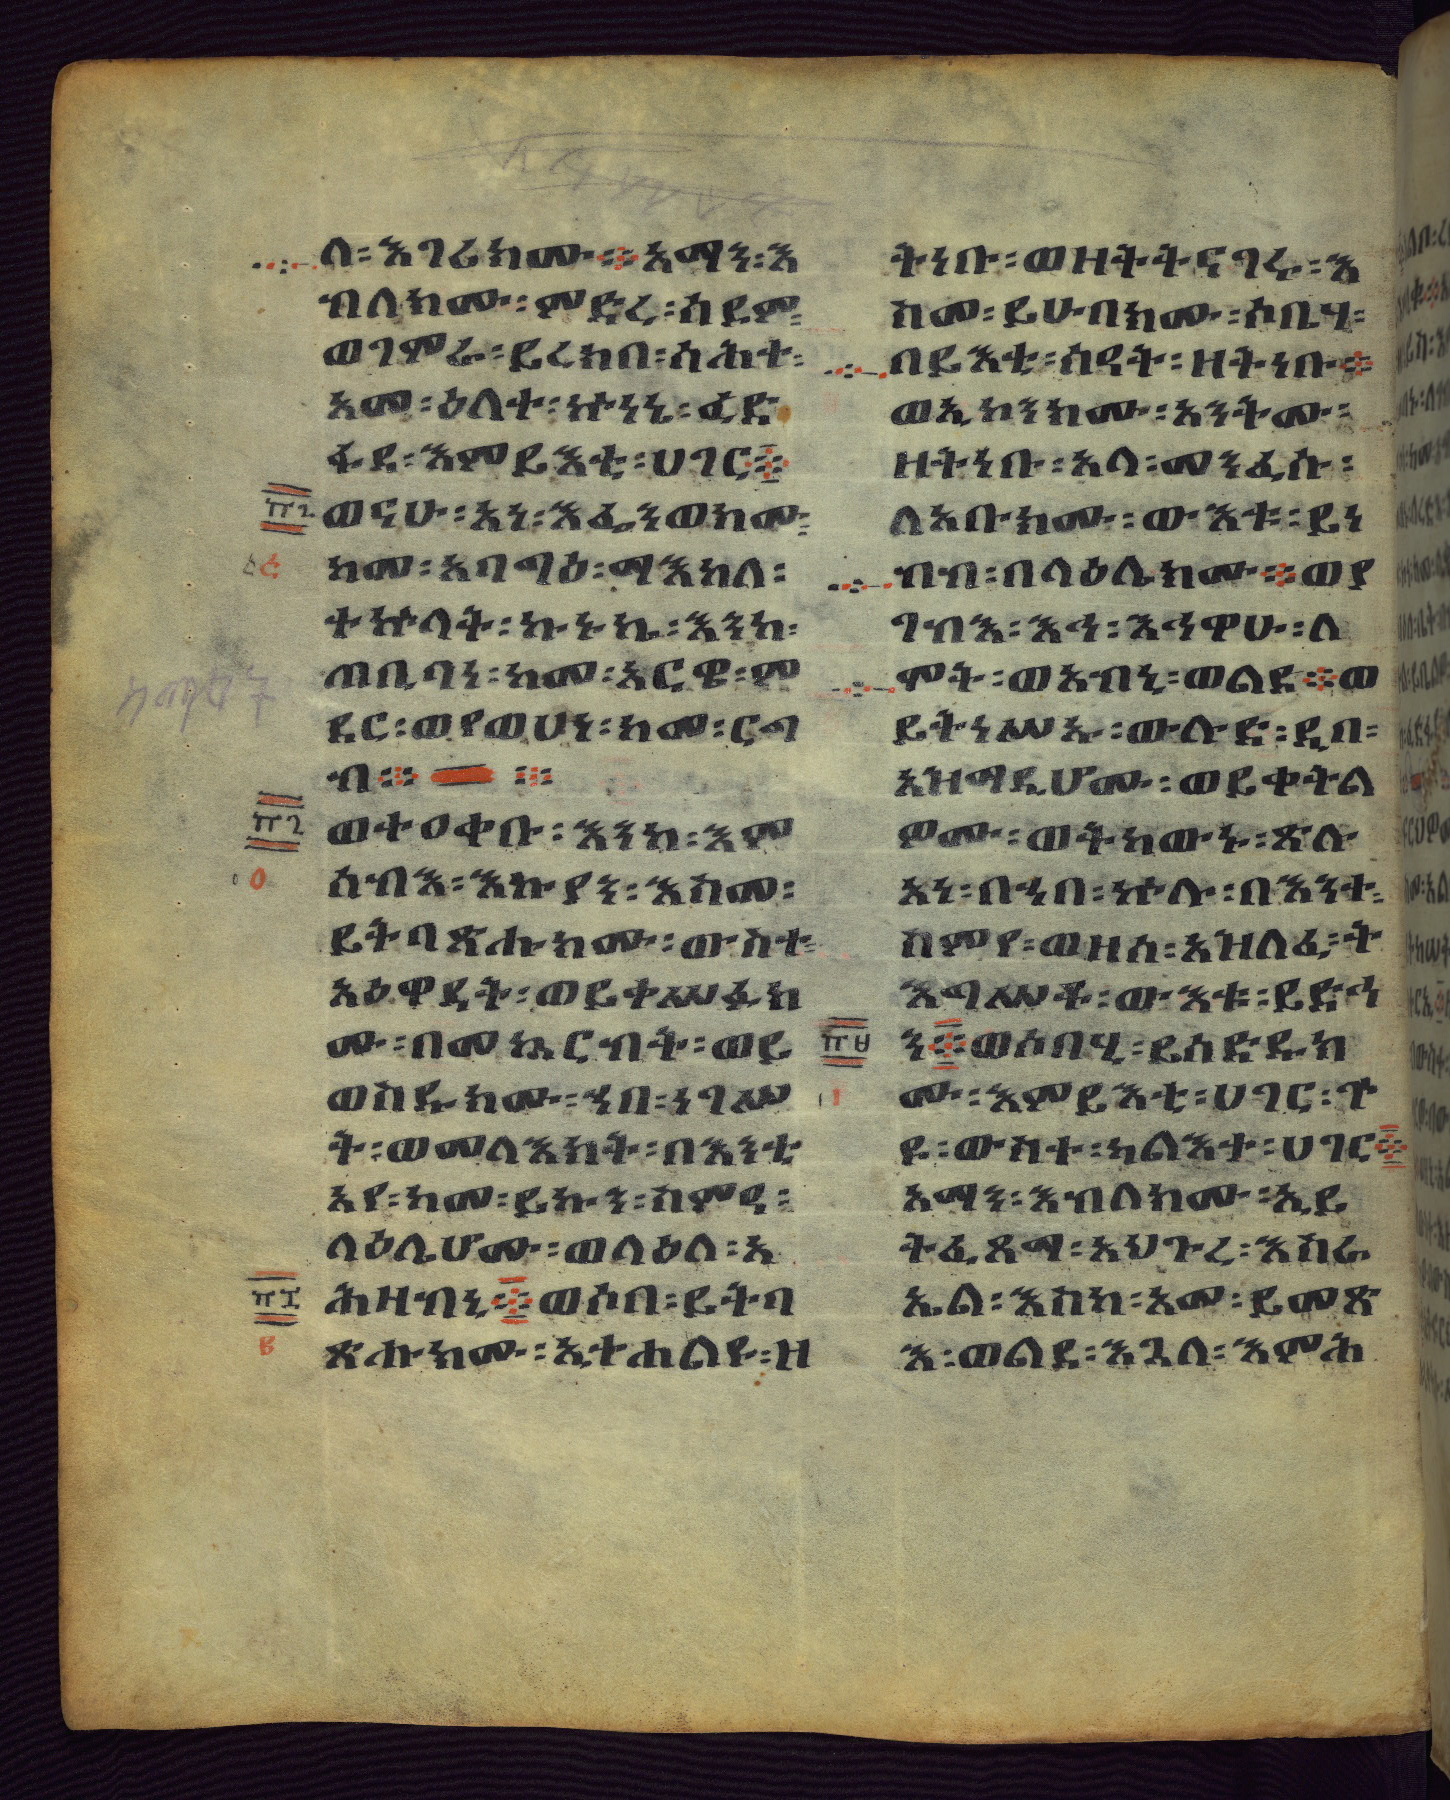 ለ፡ እገሪክሙ፨ አማን፡ እ
ብለክሙ፡ ምድረ፡ ሰዶም፡
ወገሞራ፡ ይረክባ፡ ሰሕተ፡
አመ፡ ዕለተ፡ ኵነኔ፡ ፈድ
ፋደ፡ እምይእቲ፡ ሀገር፨
ወናሁ፡ አነ፡ እፌንወክሙ፡
ከመ፡ አባግዕ፡ ማእከለ፡
ተኵላት፡ ኩኑኬ፡ እንከ፡
ጠቢባነ፡ ከመ፡ አርዌ፡ ም
ድር፡ ወየወሀነ፡ ከመ፡ ርግ
ብ፨ ፨
ወተዐቀቡ፡ እንከ፡ እም
ሰብእ፡ እኩያን፡ እስመ፡
ይትባጽሑክሙ፡ ውስተ፡
አዕዋዳት፡ ወይቀሥፉክ
ሙ፡ በመኳርብት፡ ወይ
ወስዱክሙ፡ ኀበ፡ ነገሥ
ት፡ ወመላእክት፡ በእንቲ
አየ፡ ከመ፡ ይኩን፡ ስምዐ፡
ላዕሌሆሙ፡ ወላዕለ፡ አ
ሕዛብኒ፨ ወሶበ፡ ይትባ
ጽሑክሙ፡ ኢተሐልዩ፡ ዘ
ትነቡ፡ ወዘትትናገሩ፡ እ
ስመ፡ ይሁብክሙ፡ ሶቤሃ፡
በይእቲ፡ ሰዓት፡ ዘትነቡ፨
ወኢኮንክሙ፡ አንትሙ፡
ዘትነቡ፡ አላ፡ መንፈሱ፡
ለአቡክሙ፡ ውእቱ፡ ይነ
ብብ፡ በላዕሌክሙ፨ ወያ
ገብእ፡ እኅ፡ እኅዋሁ፡ ለ
ሞት፡ ወአብኒ፡ ወልደ፨ ወ
ይትነሥኡ፡ ውሉድ፡ ዲበ፡
አዝማዲሆሙ፡ ወይቀትል
ዎሙ፡ ወትከውኑ፡ ጽሉ
አነ፡ በኀበ፡ ኵሉ፡ በእንተ፡
ስምየ፡ ወዘሰ፡ አዝለፈ፡ ት
እግሥተ፡ ውእቱ፡ ይድኅ
ን፨ ወሶበሂ፡ ይሰድዱክ
ሙ፡ እምይእቲ፡ ሀገር፡ ጕ
ዩ፡ ውስተ፡ ካልእተ፡ ሀገር፨
አማን፡ እብለክሙ፡ ኢይ
ትፌጸማ፡ አህጉረ፡ እስራ
ኤል፡ እስከ፡ አመ፡ ይመጽ
እ፡ ወልደ፡ እጓለ፡ እምሕ